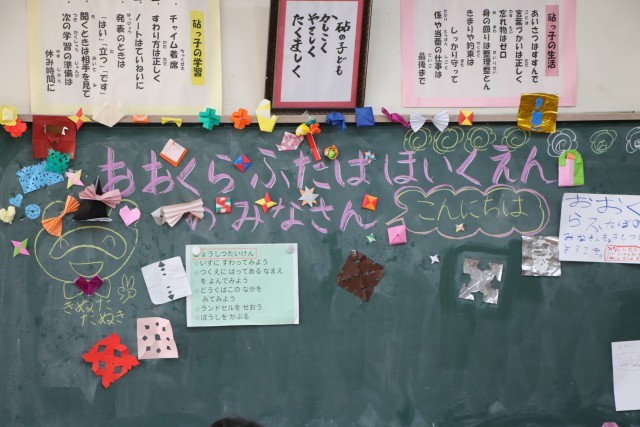 砧っ子の学習
チャイム着席
すわり方は正しく
ノートはていねいに
発表のときは
「はい」「立つ」「です」
聞くときは相手を見て
次の学習の準備は
休み時間に
砧の子ども
かしこく
やさしく
たくましく
砧っ子の生活
あいさつはすすんで
言葉づかいは正しく
忘れ物はゼロ
身の回りは整理整とん
きまりや約束は
しっかり守って
係や当番の仕事は
最後まで
おおくらふたばほいくえん
のみなさん
こんにちは
きぬた
たぬき
しょうがくせいたいけん
いすに すわってみよう
つくえに はってある なまえ
を よんでみよう
どうぐばこの なかを
みてみよう
ランドセルを せおう
ぼうしを かぶる